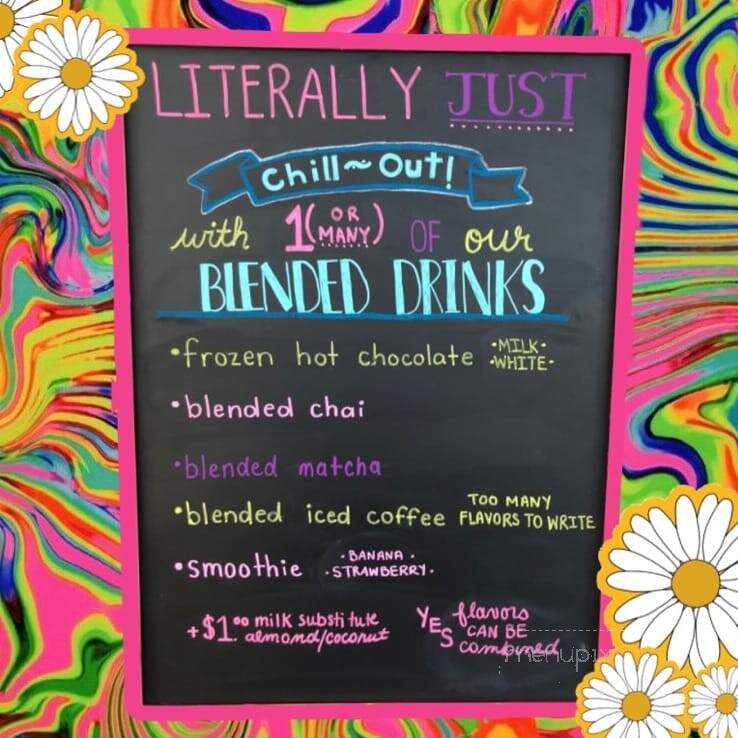 LITERALLY JUST
Chill~Out!
with 1 (OR MANY) OF our
BLENDED DRINKS
•frozen hot chocolate •MILK• •WHITE•
•blended chai
•blended matcha
•blended iced coffee TOO MANY FLAVORS TO WRITE
•smoothie •BANANA• •STRAWBERRY•
+$1.00 milk substitute
almond/coconut
YES flavors
CAN BE
combined
menupix